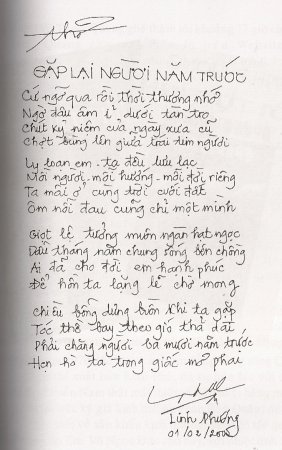 thơ
GẶP LẠI NGƯỜI NĂM TRƯỚC
Cứ ngỡ qua rồi thời thương nhớ
Ngờ đâu âm ỉ dưới tàn tro
Chút kỷ niệm của ngày xưa cũ
Chợt bùng lên giữa trái tim người
Ly loạn em - ta đều lưu lạc
Mỗi người - mỗi hướng - mỗi đời riêng
Ta mãi ở cùng trời cuối đất
Ôm nỗi đau cũng chỉ một mình
Giọt lệ tưởng muôn ngàn hạt ngọc
Dẫu tháng năm chung sống bên chồng
Ai đã cho đời em hạnh phúc
Để hồn ta lặng lẽ chờ mong
Chiều bỗng dưng buồn khi ta gặp
Tóc thề bay theo gió thả dài
Phải chăng người ba mươi năm trước
Hẹn hò ta trong giấc mơ phai
Linh Phương
01/02/200